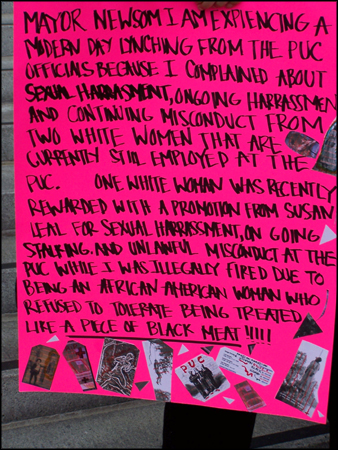 MAYOR NEWSOM I AM EXPIENCING A
MODERN DAY LYNCHING FROM THE PUC
OFFICIALS BECAUSE I COMPLAINED ABOUT
SEXUAL HARRASMENT, ONGOING HARRASSMEN
AND CONTINUING MISCONDUCT FROM
TWO WHITE WOMEN THAT ARE
CURRENTLY STILL EMPLOYED AT THE
PUC. ONE WHITE WOMAN WAS RECENTLY
REWARDED WITH A PROMOTION FROM SUSAN
LEAL FOR SEXUAL HARRASSMENT, ON GOING
STALKING. AND UNLAWFUL MISCONDUCT AT THE
PUC WHILE I WAS ILLEGALLY FIRED DUE TO
BEING AN AFRICAN-AMERICAN WOMAN WHO
REFUSED TO TOLERATE BEING TREATED
LIKE A PIECE OF BLACK MEAT!!!!!
PUC